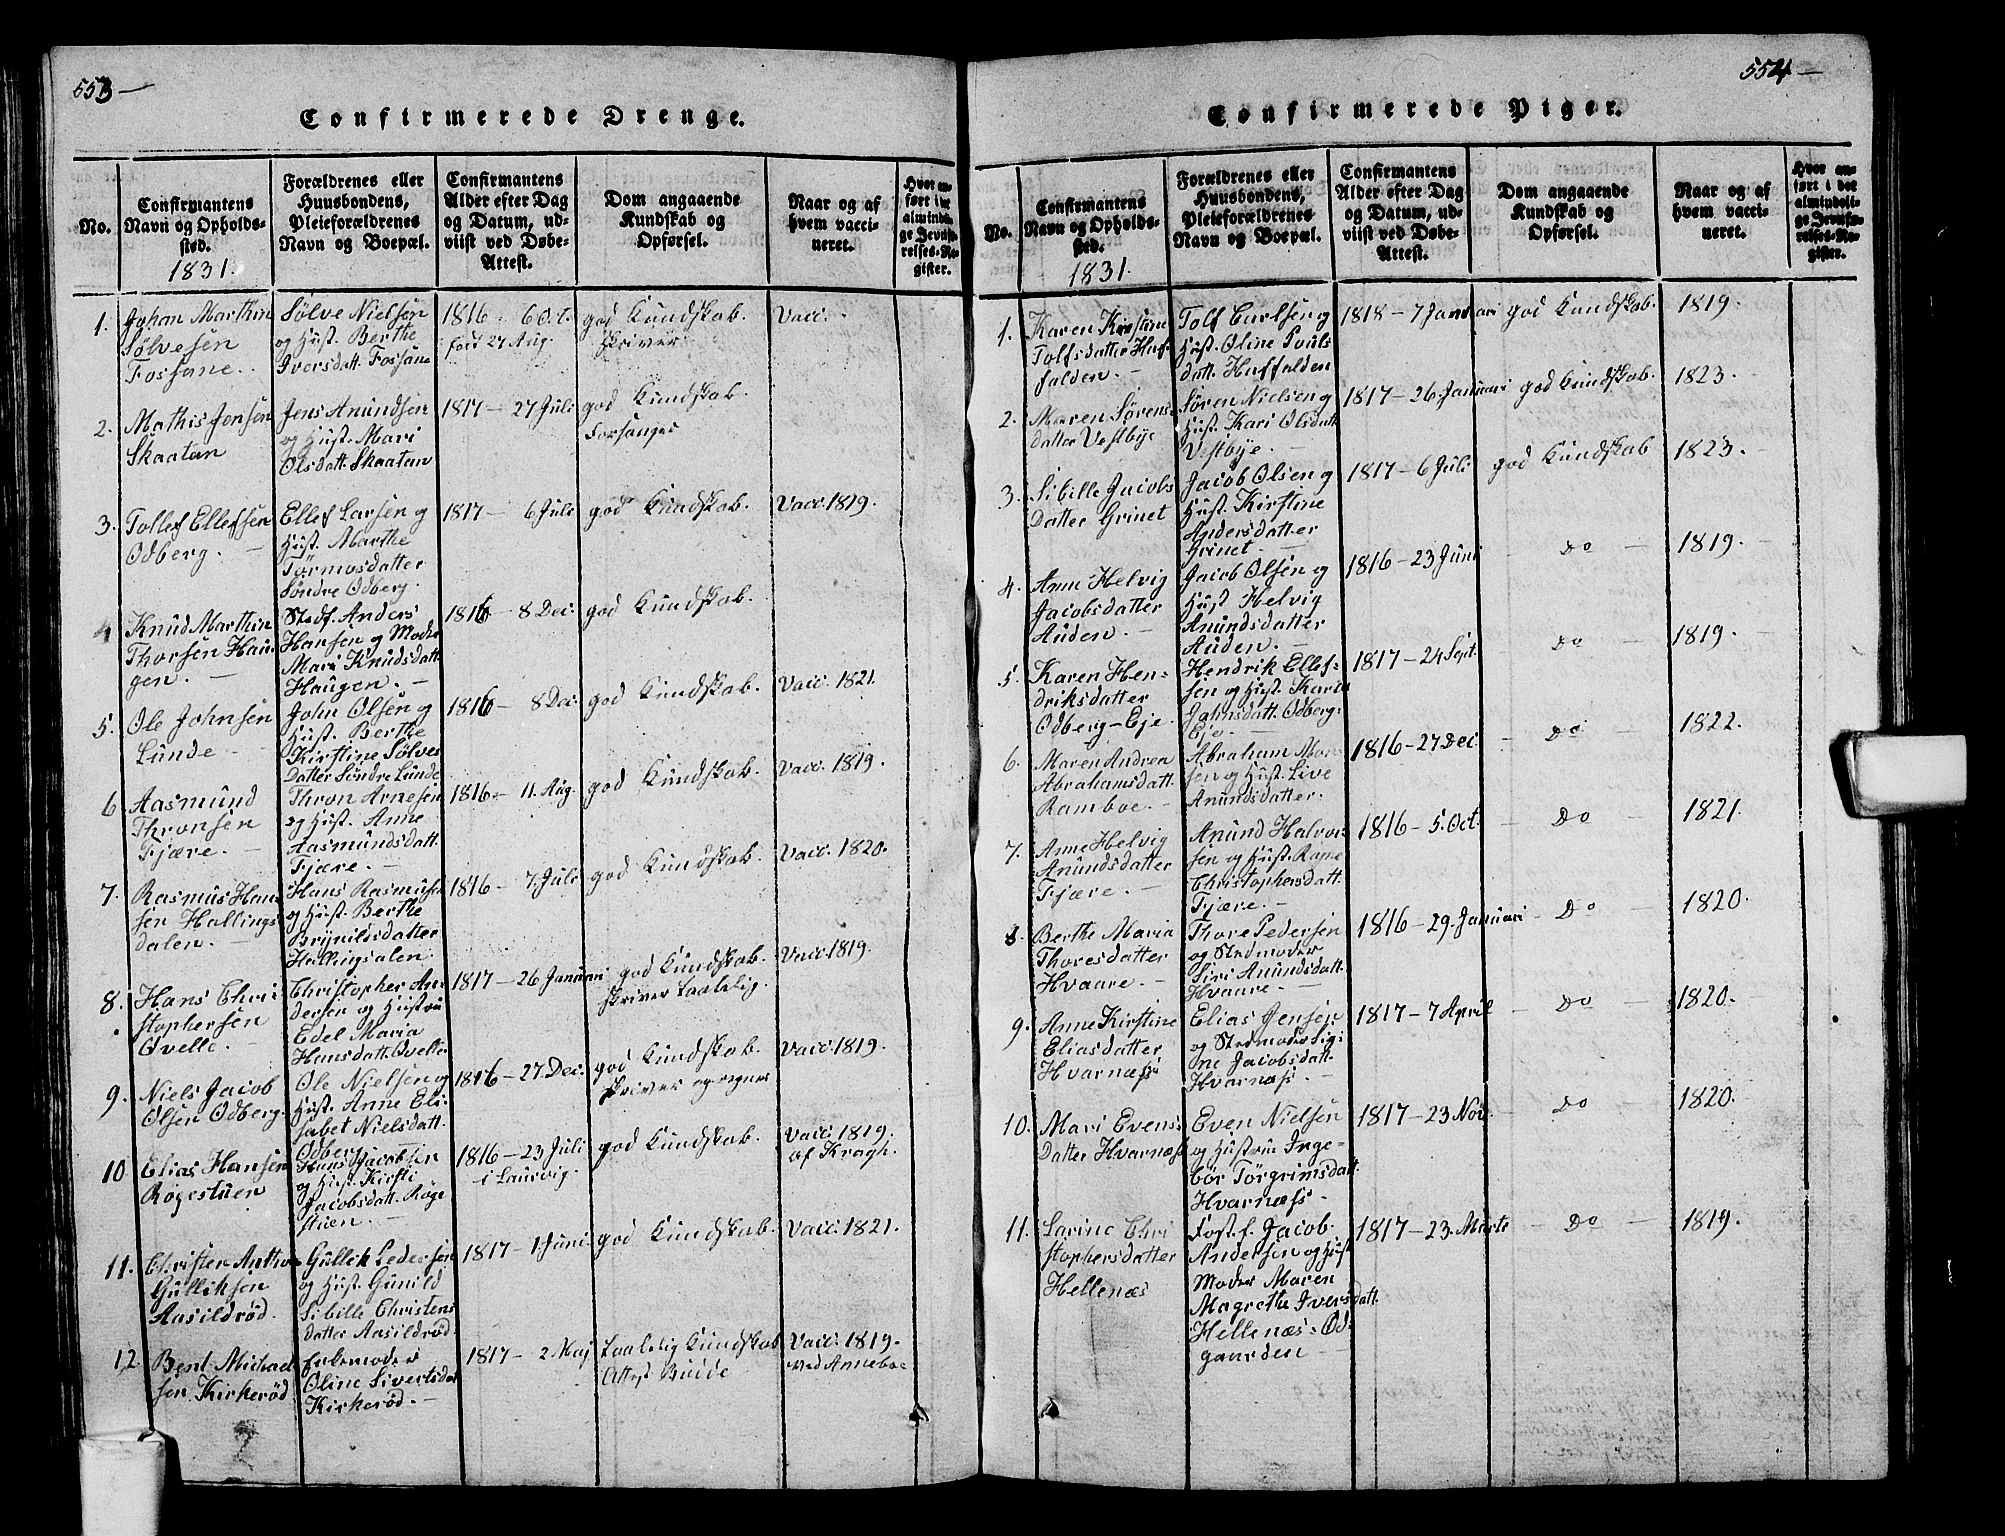 553 —
Confirmerede Drenge.
No.
Confirmantens
Navn og Opholds-
sted.
1831.
Forældrenes eller
Huusbondens,
Pleieforældrenes
Navn og Boepæl.
Confirmantens
Alder efter Dag
og Datum, ud-
viist ved Døbe-
Attest.
Dom angaaende
Kundskab og
Opførsel.
Naar og af
hvem vacci-
neret.
Hvor an-
ført i det
almindeli-
ge Jevnfø-
relses-Re-
gister.
1.
Johan Marthin
Sølvesen
Fossane.
Sølve Nielsen
og Hust. Berthe
Iversdatt. Fossane
1816 - 6 Oct.
ført 27 Aug.
god Kundskab.
skriver
Vacc. -
2.
Mathis Jensen
Skaatan
Jens Anundsen
og Hust. Mari
Olsdatt. Skaatan
1817 - 27 Juli
god Kundskab.
Forsanger
3.
Tollef Ellefsen
Odberg. -
Ellef Larsen og
Hust. Marthe
Tormosdatter
Søndre Odberg.
1817 - 6 Juli
god Kundskab.
Vacc. 1819.
4
Knud Marthin
Thorsen Hau-
gen. -
Stedf. Anders
Hansen og Moder
Mari Knudsdatt.
Haugen. -
1816 - 8 Dec.
god Kundskab.
5.
Ole Johnsen
Lunde -
John Olsen og
Hust. Berthe
Kirstine Sølves
Datter Søndre Lunde
1816 - 8 Dec.
god Kundskab.
Vacc. 1821.
6
Aasmund
Thronsen
Fjære. -
Thron Arnesen
og Hust. Anne
Aasmundsdatt.
Fjære. -
1816 - 11. Aug.
god Kundskab.
Vacc. 1819.
7.
Rasmus Han-
sen Hallings-
dalen. -
Hans Rasmusen
og Hust. Berthe
Brynildsdatter
1816 - 7. Juli
god Kundskab.
Vacc. 1820.
8.
Hans Chri-
stophersen
Qvelle. -
Christopher An-
dersen og Hustru
Edel Maria
Hansdatt. Qvelle
1817 - 26 Januari
god Kundskab.
skriver taalelig.
Vacc. 1819.
9.
Niels Jacob
Olsen Odberg.
Ole Nielsen og
Hust. Anne Eli-
sabet Nielsdatt.
Odberg
1816 - 27 Dec.
god Kundskab.
skriver og regner
Vacc. 1819.
10
Elias Hansen
Røgestuen
Hans Jacobsen
og Hust. Kirsti
Jacobsdatt. Røge
stuen. -
1816 - 23 Juli
i Laurvig.
god Kundskab.
Vacc. 1819.
af Kragh.
11.
Christen Antho-
Gulliksen
Aasildrød.
Gullik Pedersen
og Hust. Gunild
Sibille Christens
datter Aasildrød.
1817 - 1 Juni
god Kundskab.
Vacc. 1821.
12.
Bent Michael
sen Kirkerød.
Enkemoder
Oline Sivertsda
Kirkerød. -
1817 - 2 Maj
taalelig Kundskab
Vacc. 1819.
ved Anneboe
554 —
Confirmerede Piger.
No.
Confirmantens
Navn og Opholds-
sted.
1831.
Forældrenes eller
Huusbondens,
Pleieforældrenes
Navn og Boepæl.
Confirmantens
Alder efter Dag
og Datum, ud-
viist ved Døbe-
Attest.
Dom angaaende
Kundskab og
Opførsel.
Naar og af
hvem vacci-
neret.
Hvor an-
ført i det
almindeli-
ge Jevnfø-
relses-Re-
gister.
1.
Karen Kirstine
Tolfsdatter Haf-
falden. -
Tolf Carlsen og
Hust. Oline Pouls
datt. Haffalden
1818 - 7 Januari
god Kundskab.
1819.
2.
Maren Sørens-
datter Vestbye
Søren Nielsen og
Hust. Kari Olsdatt.
Vestbye. -
1817 - 26. Januari
god Kundskab.
1823. -
3.
Sibille Jacobs
Datter Grinet
Jacob Olsen og
Hust. Kirstine
Andersdatter
Grinet. -
1817 - 6 Juli
god Kundskab
1823. -
4.
Anne Helvig
Jacobsdatter
Auden. -
Jacob Olsen og
Hust Helvig
Anundsdatter
Auden. -
1816 - 23 Juni
- Do -
1819. -
5.
Karen Hen-
driksdatter
Odberg-Eje. -
Hendrik Ellef-
sen og Hust. Karen
Johnsdatt. Odberg-
Eje. -
1817 - 24 Sept.
- Do -
1819. -
6.
Maren Andrea
Abrahamsdatt.
Ramboe. -
Abraham Mon-
sen og Hust. Live
Anundsdatter.
1816 - 27 Dec
- Do -
1822. -
7.
Anne Helvig
Anundsdatter
Fjære. -
Anund Halvor-
sen og Hust. Ragne
Christophersdatt.
Fjære. -
1816 - 5. Oct.
- Do -
1821.
8.
Berthe Maria
Thoresdatter
Hvaare. -
Thore Pedersen
og Stedmoder
Siri Anundsdatt.
Hvaare. -
1816 - 29. Januari
- Do -
1820.
9.
Anne Kirstine
Eliasdatter
Hvarnæss
Elias Jensen
og Stedmoder Sig-
ne Jacobsdatt.
Hvarnæss. -
1817 - 7 April
- Do -
1820. -
10.
Mari Evens-
Datter Hvarnæss
Even Nielsen
og Hustru Inge-
bør Torgrimsdatt.
Hvarnæss. -
1817 - 23 Nov.
- Do -
1820.
11.
Larine Chri
stophersdatter
Hellenæs
Fost. f. Jacob
Andersen og Hust
Moder Maren
Magrethe Iversdatt.
Hellenæs-Od-
gaarden -
1817 - 23. Marts
- Do -
1819. -